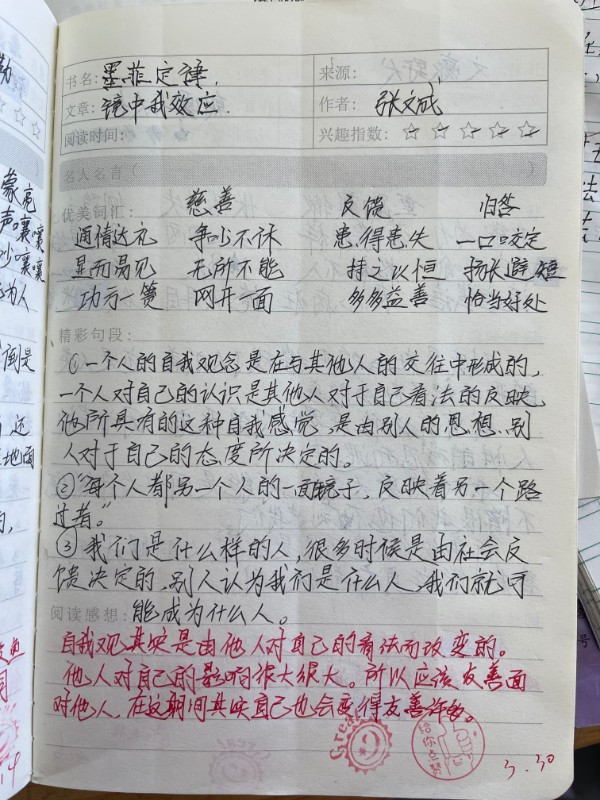 书名: 墨菲定律. 来源:
文章: 镜中我效应. 作者: 张文成
阅读时间: 兴趣指数: ☆ ☆ ☆ ☆ ☆
名人名言( )
优美词汇: 慈善 反馈 归咎
通情达礼 争吵不休 患得患失 一口咬定
显而易见 无所不能 持之以恒 扬长避短
功亏一篑 网开一面 多多益善 恰当好处
精彩句段:
①一个人的自我观念是在与其他人的交往中形成的,
一个人对自己的认识是其他人对于自己看法的反映,
他所具有的这种自我感觉,是由别人的思想、别
人对于自己的态度所决定的。
②"每个人都另一个人的一面镜子,反映着另一个路
过者。"
③我们是什么样的人,很多时候是由社会反
馈决定的,别人认为我们是什么人,我们就可
阅读感想: 能成为什么人。
自我观其实是由他人对自己的看法而改变的。
他人对自己的影响很大很大。所以应该友善面
对他人,在这期间其实自己也会变得友善许多。
Great
给你点赞
3.30